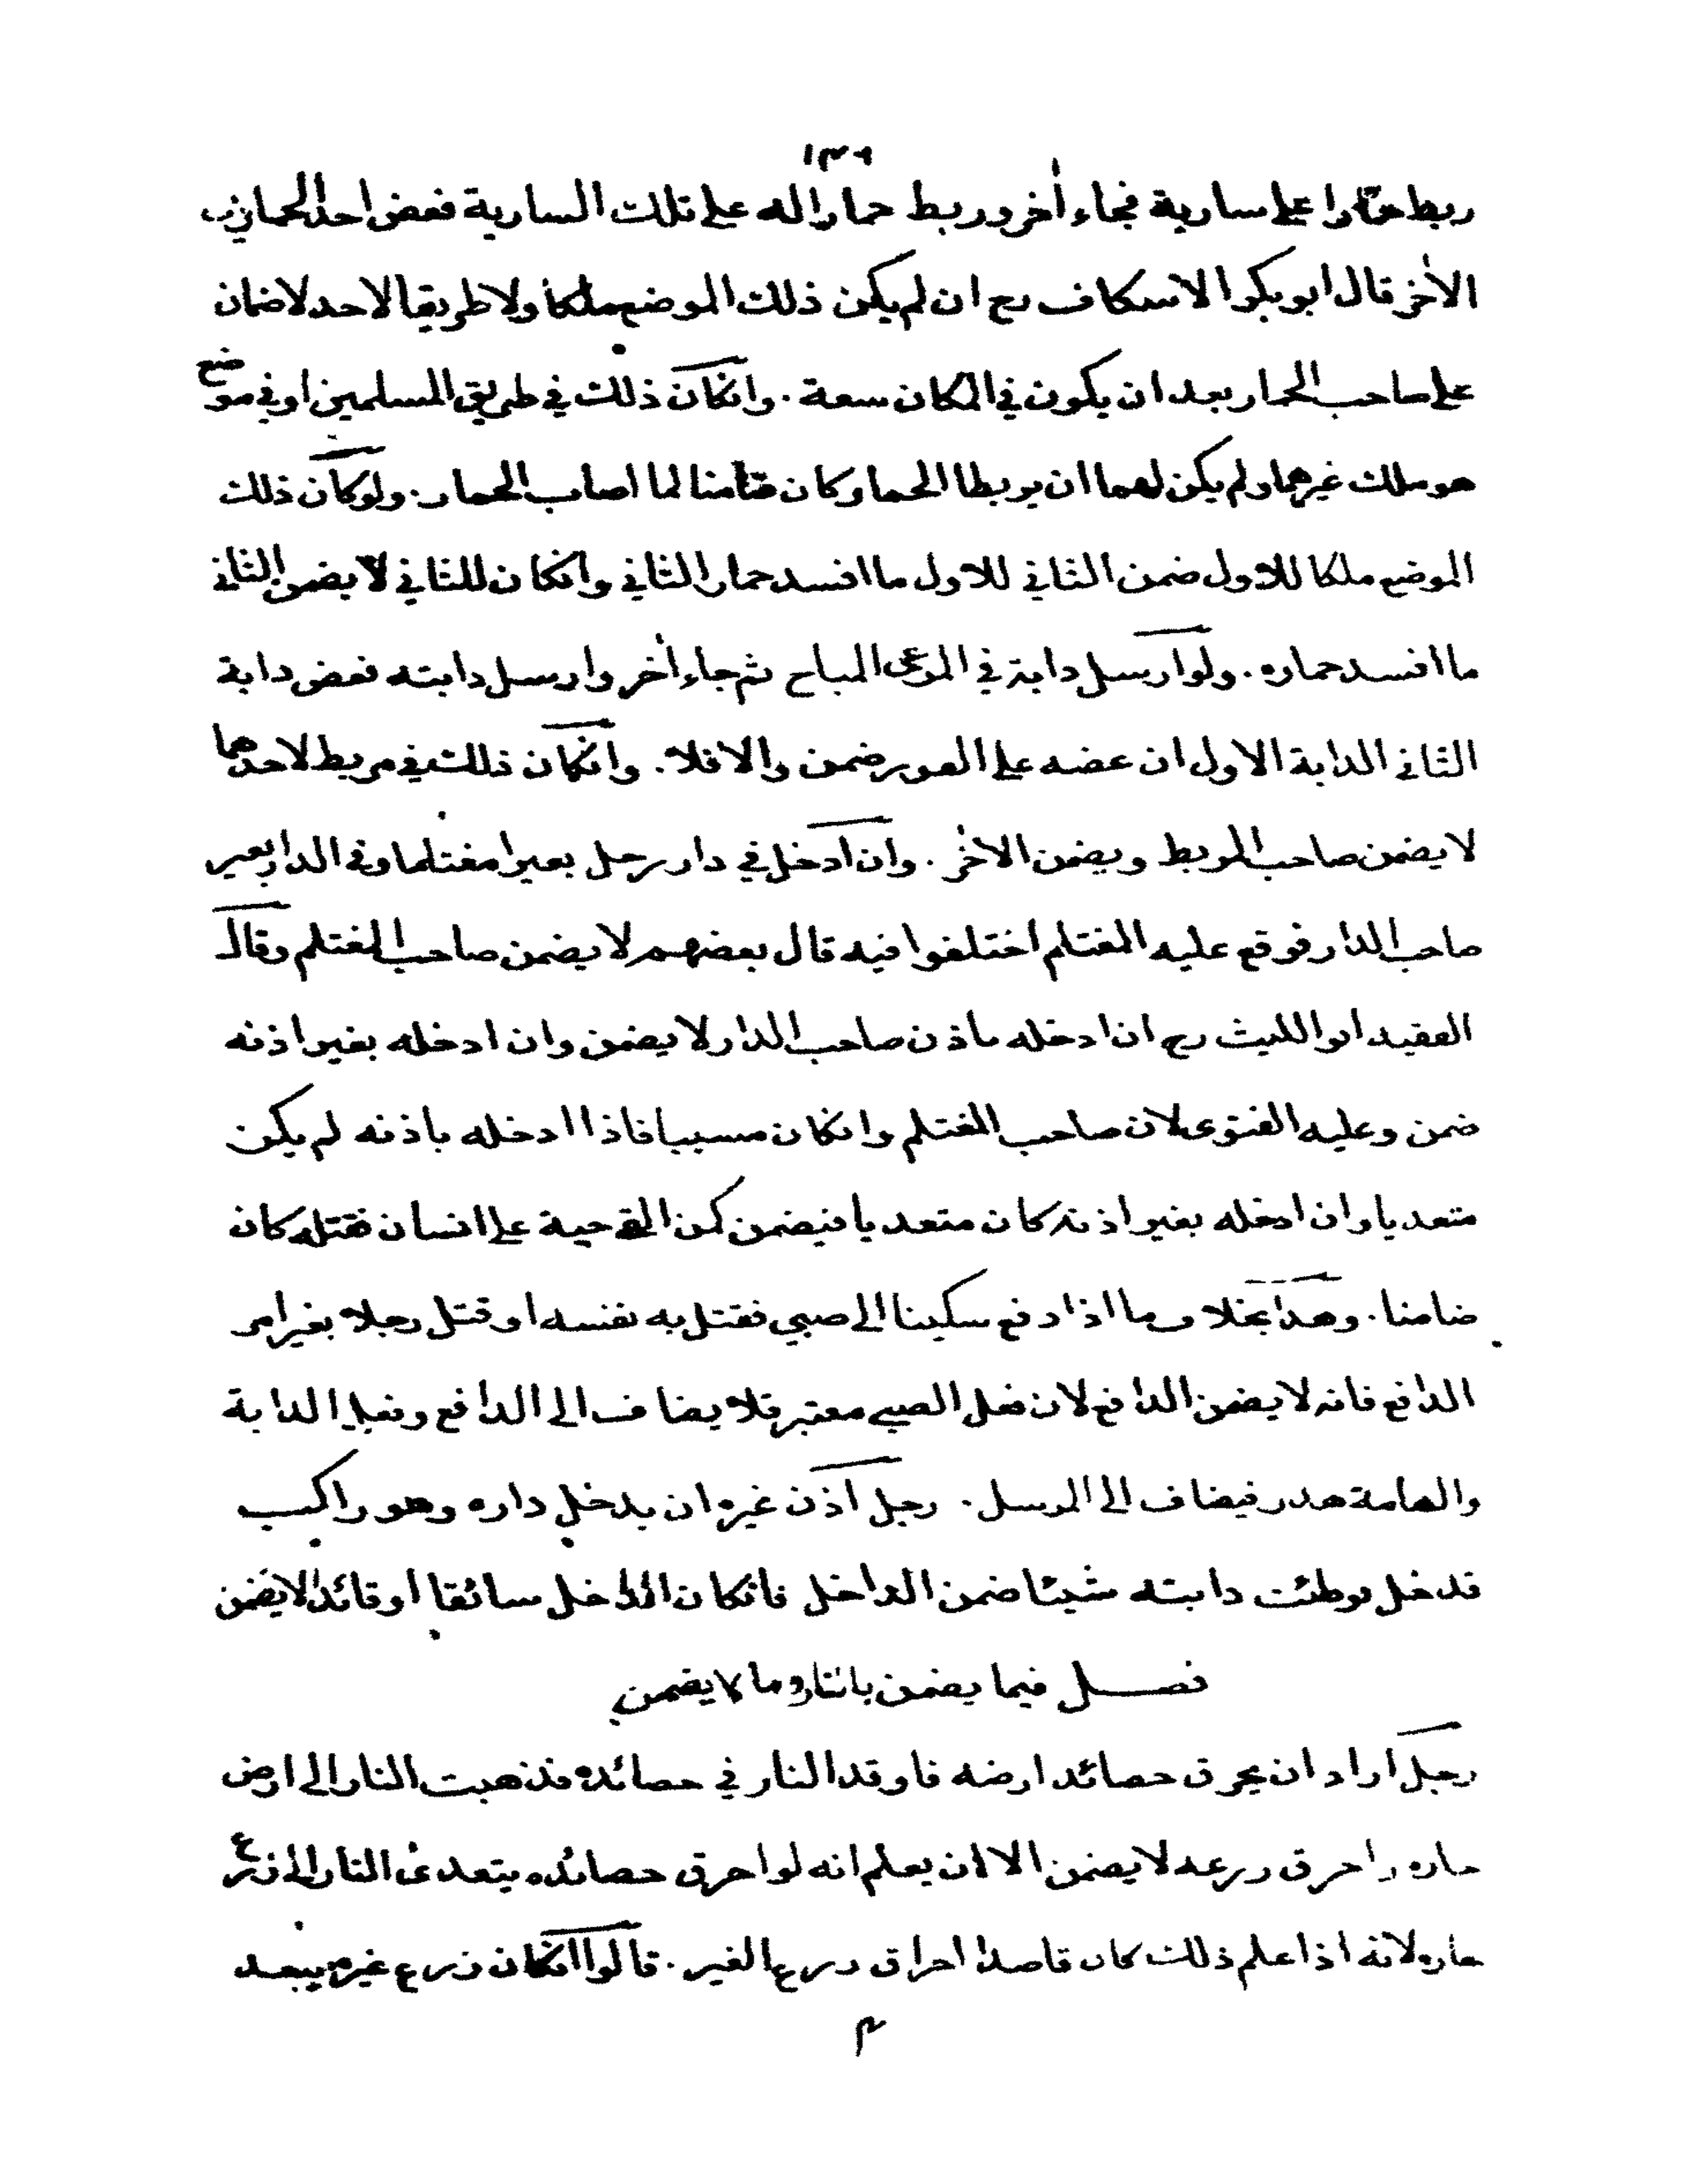 ١٣٦
ربط حمارا على سارية فجاء أخر وربط حمارا له على تلك السارية فعض احد الحمارين
الأخر قال ابو بكر الاسكاف رح ان لم يكن ذلك الموضع ملكا ولا طريقا لاحد لا ضمان
على صاحب الحمار بعد ان يكون في المكان سعة . وانكان ذلك في طريق المسلمين او في موضع
هو ملك غيرهما ولم يكن لهما ان يربطا الحمار كان ضامنا لما اصاب الحمار . ولو كان ذلك
الموضع ملكا للاول ضمن الثاني للاول ما افسد حمار الثاني وانكان للثاني لا يضمن الثاني
ما افسد حماره . ولو ارسل دابة في المرعى المباح ثم جاء أخر وارسل دابته فعض دابة
الثاني الدابة الاول ان عضه على الفور ضمن والا فلا . وانكان ذلك في مربط لاحدهما
لا يضمن صاحب المربط ويضمن الأخر . وان ادخل في دار رجل بعيرا مغتلما وفي الدار بعير
صاحب الدار فوقع عليه المغتلم اختلفوا فيه قال بعضهم لا يضمن صاحب المغتلم وقال
الفقيه ابو الليث رح ان ادخله باذن صاحب الدار لا يضمن وان ادخله بغير اذنه
ضمن وعليه الفتوى لان صاحب المغتلم وانكان مسببا فاذا ادخله باذنه لم يكن
متعديا وان ادخله بغير اذنه كان متعديا فيضمن كمن القى حية على انسان فقتله كان
ضامنا . وهذا بخلاف ما اذا دفع سكينا الى صبي فقتل به نفسه او قتل رجلا بغير امر
الدافع فانه لا يضمن الدافع لان فعل الصبي معتبر فلا يضاف الى الدافع وفعل الدابة
والهامة هدر فيضاف الى المرسل . رجل اذن غيره ان يدخل داره وهو راكب
فدخل فوطئت دابته شيئا ضمن الداخل فانكان الداخل سائقا او قائدا لا يضمن
فصل فيما يضمن بالنار وما لا يضمن
رجل اراد ان يحرق حصائد ارضه فاوقد النار في حصائده فذهبت النار الى ارض
جاره واحرق زرعه لا يضمن الا ان يعلم انه لو احرق حصائده يتعدى النار الى زرع
جاره لانه اذا علم ذلك كان قاصدا احراق زرع الغير . قالوا انكان زرع غيره يبعد